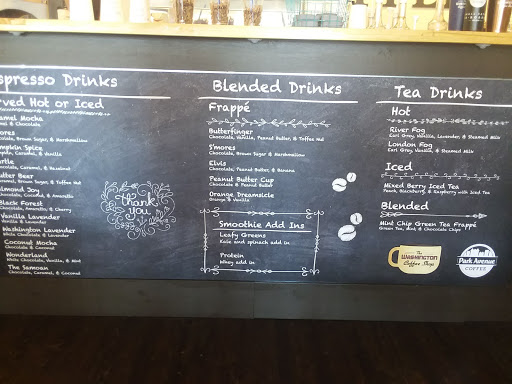 spresso Drinks
rved Hot or Iced
amel Mocha
amel & Chocolate
ores
Chocolate, Brown Sugar, & Marshmallow
mpkin Spice
Pumpkin, Caramel, & Vanilla
rtle
Chocolate, Caramel, & Hazelnut
tter Beer
Caramel, Brown Sugar, & Toffee Nut
lmond Joy
Chocolate, Coconut, & Amaretto
lack Forest
Chocolate, Amaretto, & Cherry
Vanilla Lavender
Vanilla & Lavender
Washington Lavender
White Chocolate & Lavender
Coconut Mocha
Chocolate & Coconut
Wonderland
White Chocolate, Vanilla, & Mint
The Samoan
Chocolate, Caramel, & Coconut
thank
you
Blended Drinks
Frappé
Butterfinger
Chocolate, Vanilla, Peanut Butter, & Toffee Nut
S'mores
Chocolate, Brown Sugar & Marshmallow
Elvis
Chocolate, Peanut Butter, & Banana
Peanut Butter Cup
Chocolate & Peanut Butter
Orange Dreamsicle
Orange & Vanilla
Smoothie Add Ins
Leafy Greens
Kale and spinach add in
Protein
Whey add in
Tea Drinks
Hot
River Fog
Earl Grey, Vanilla, Lavender & Steamed Milk
London Fog
Earl Grey, Vanilla, & Steamed Milk
Iced
Mixed Berry Iced Tea
Peach, Blackberry, & Raspberry with Iced Tea
Blended
Mint Chip Green Tea Frappé
Green Tea, Mint & Chocolate Chips
The
WASHINGTON
Coffee Shop
Park Avenue
COFFEE